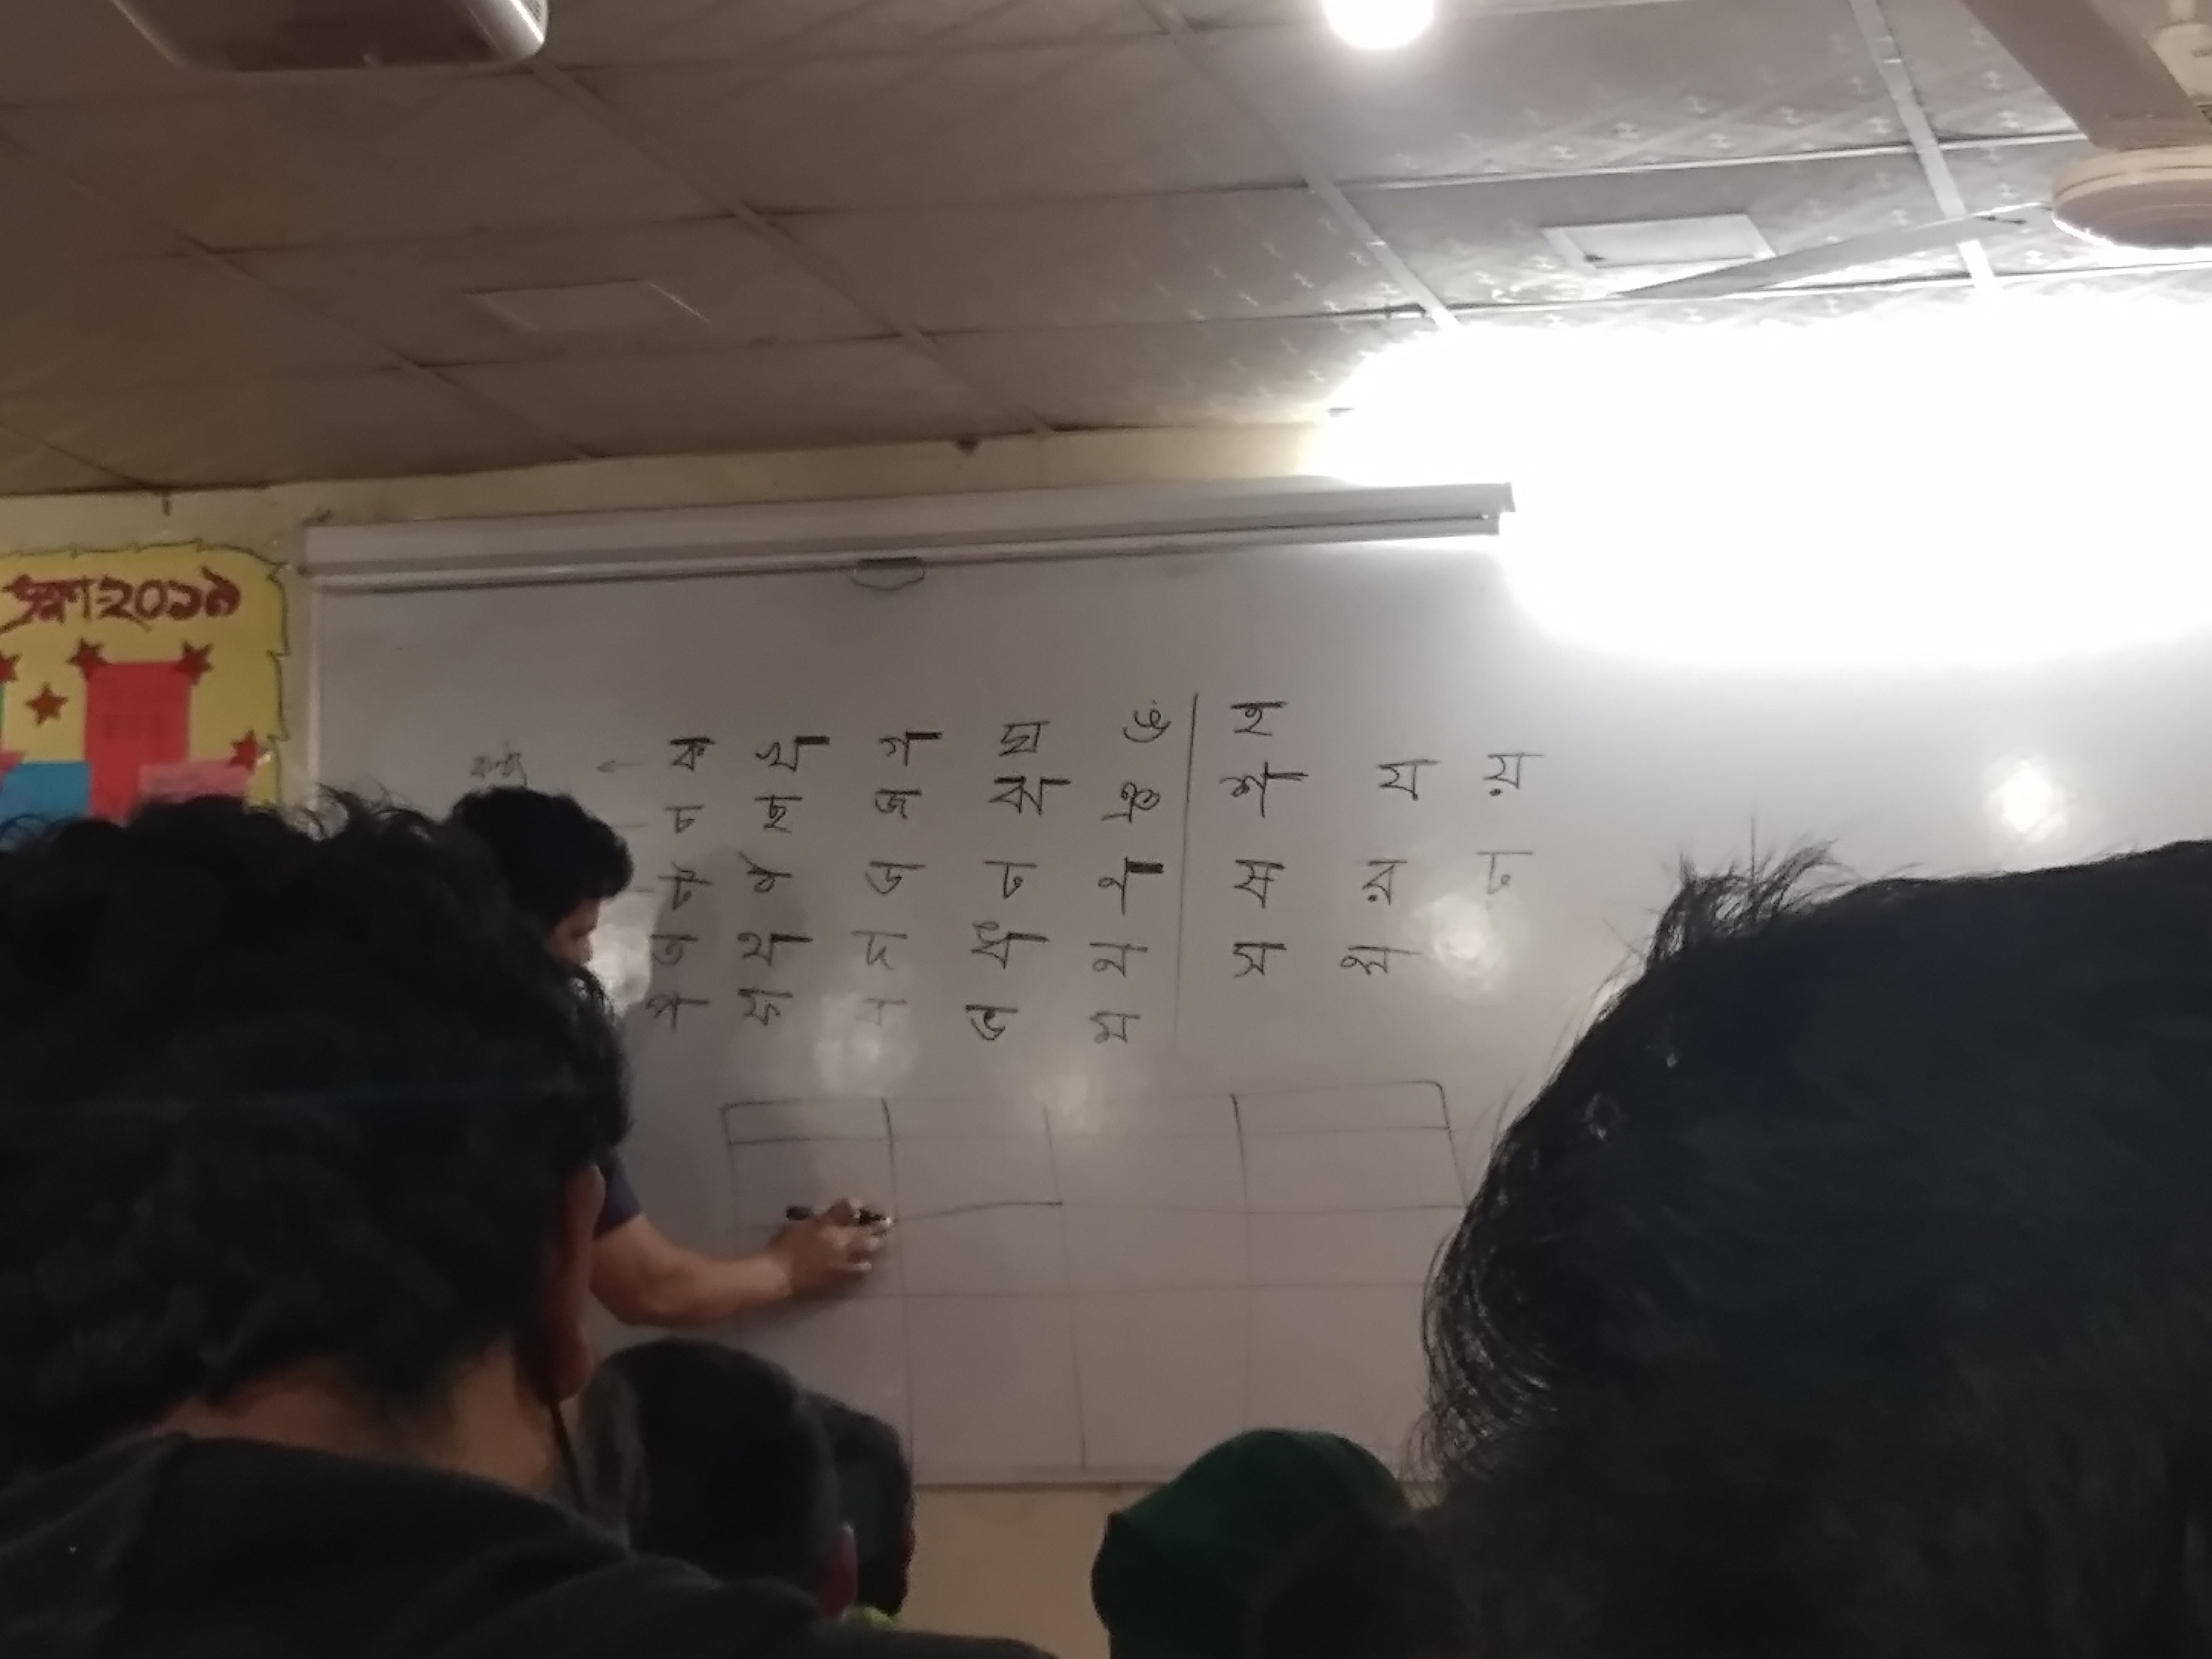 ২০১৯
কণ্ঠ ← ক খ গ ঘ ঙ হ
চ ছ জ ঝ ঞ শ য য়
ট ঠ ড ঢ ণ ষ র ঢ
ত থ দ ধ ন স ল
প ফ ব ভ ম